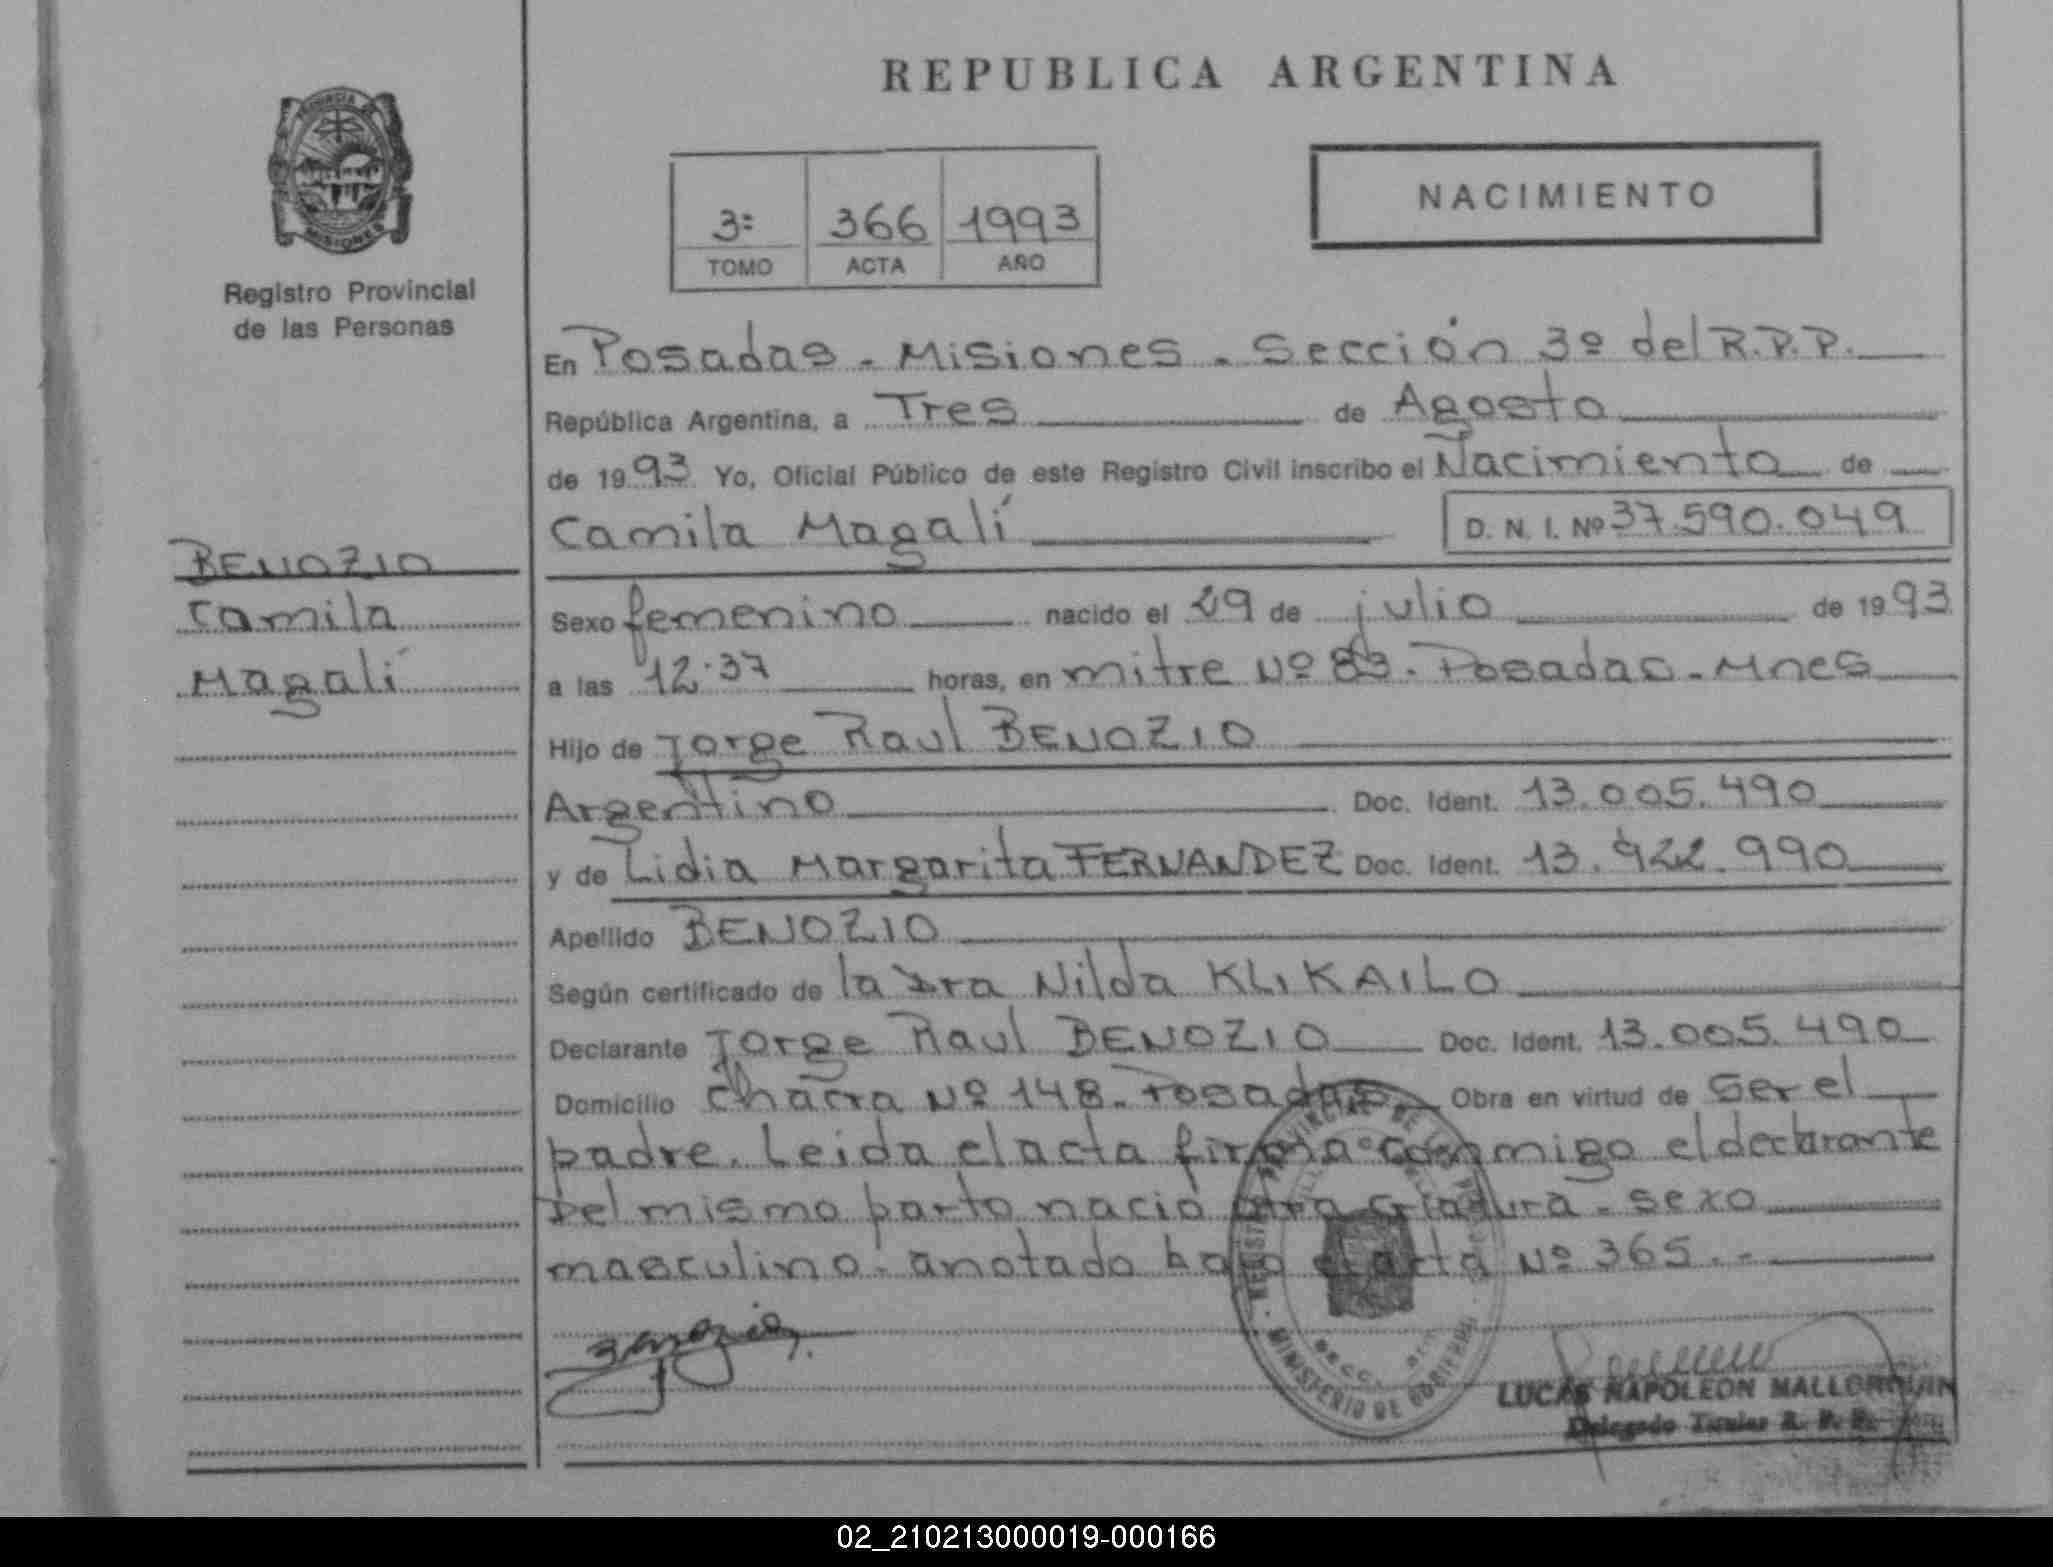 REPUBLICA ARGENTINA
PROVINCIA DE
MISIONES
Registro Provincial
de las Personas
3º 366 1993
TOMO ACTA AÑO
NACIMIENTO
En Posadas - Misiones - Sección 3º del R.P.P.
República Argentina, a Tres de Agosto
de 1993 Yo, Oficial Público de este Registro Civil inscribo el Nacimiento de
Camila Magalí D. N. I. Nº 37.590.049
BENOZIO
Camila
Magalí
Sexo femenino nacido el 29 de julio de 1993
a las 12.37 horas, en mitre Nº 83. Posadas - Mnes
Hijo de Jorge Raul BENOZIO
Argentino Doc. Ident. 13.005.490
y de Lidia Margarita FERNANDEZ Doc. Ident. 13.922.990
Apellido BENOZIO
Según certificado de la Dra Nilda KLIKAILO
Declarante Jorge Raul BENOZIO Doc. Ident. 13.005.490
Domicilio Chacra Nº 148. Posadas Obra en virtud de ser el
padre. Leida el acta firma conmigo el declarante
Del mismo parto nació otra criadura - sexo
masculino. anotado bajo el acta Nº 365. -
MINISTERIO DE GOBIERNO
LUCAS NAPOLEON MALLORQUIN
Delegado Titular R. P. P.
02_210213000019-000166